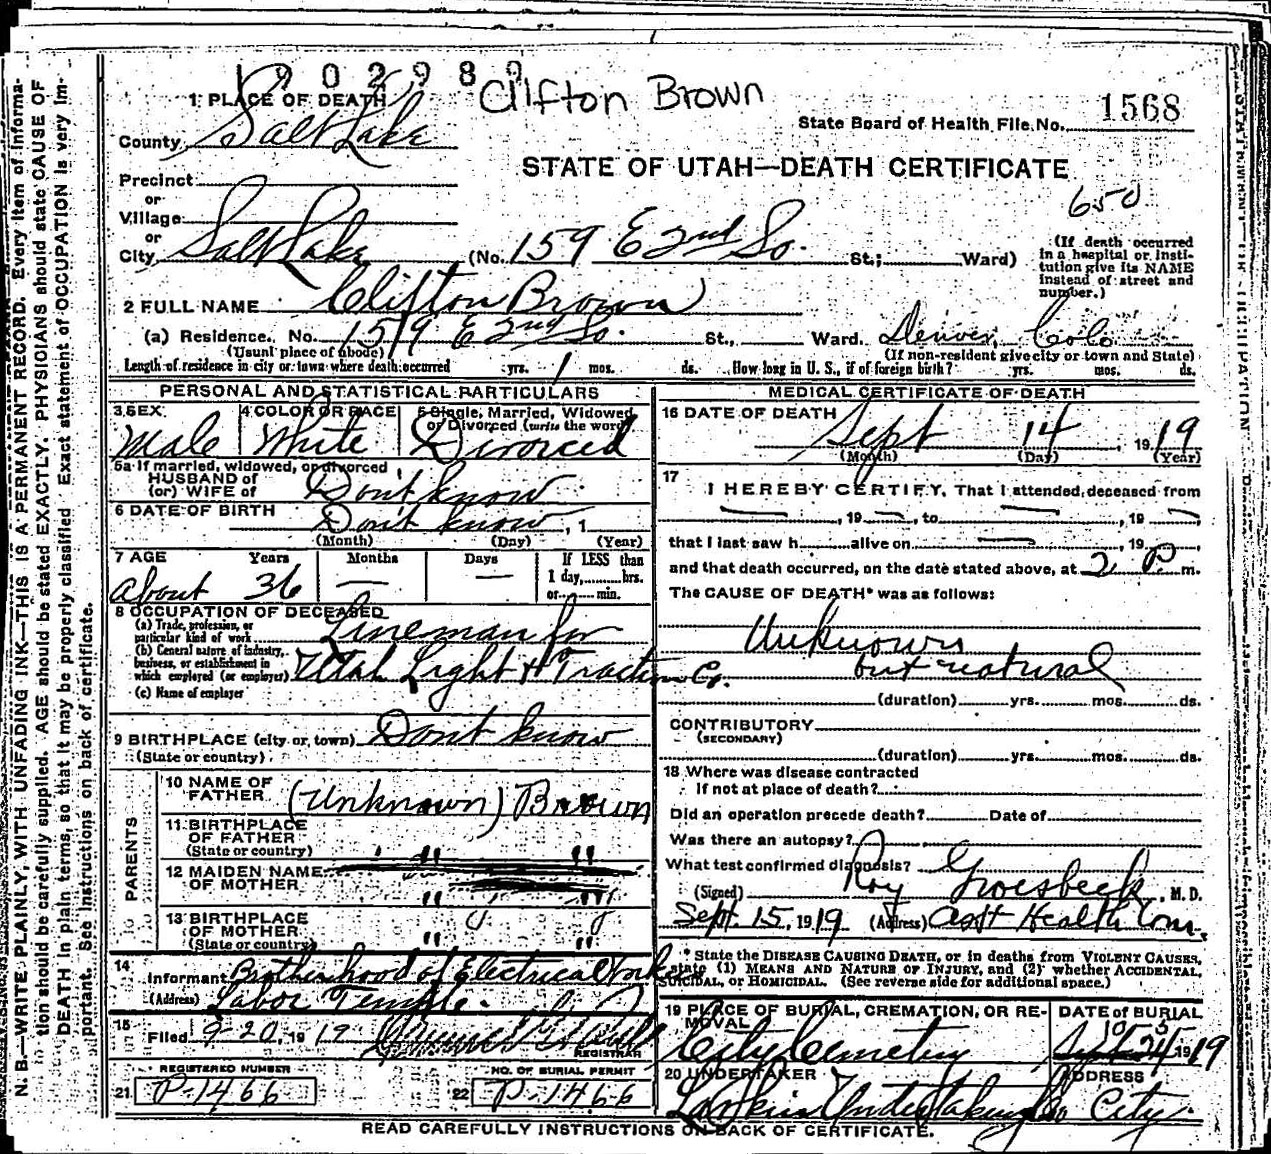 1902989
Clifton Brown
1 PLACE OF DEATH
State Board of Health File No. 1568
County Salt Lake
STATE OF UTAH—DEATH CERTIFICATE
Precinct
or
650
Village
or
City Salt Lake (No. 159 E 2nd So. St.; Ward)
(If death occurred in a hospital or institution give its NAME instead of street and number.)
2 FULL NAME Clifton Brown
(a) Residence. No. 159 E 2nd So. St., Ward. Denver, Colo
(Usual place of abode) (If non-resident give city or town and State)
Length of residence in city or town where death occurred yrs. 1 mos. ds. How long in U. S., if of foreign birth? yrs. mos. ds.
PERSONAL AND STATISTICAL PARTICULARS
3 SEX 4 COLOR OR RACE 5 Single, Married, Widowed or Divorced (write the word)
Male White Divorced
5a If married, widowed, or divorced
HUSBAND of
(or) WIFE of Don't know
6 DATE OF BIRTH Don't know, 1
(Month) (Day) (Year)
7 AGE Years Months Days If LESS than
about 36 — — 1 day, hrs.
or min.
8 OCCUPATION OF DECEASED
(a) Trade, profession, or particular kind of work Lineman for
(b) General nature of industry, business, or establishment in which employed (or employer) Utah Light & Traction Co.
(c) Name of employer
9 BIRTHPLACE (city or town) Don't know
(State or country)
PARENTS
10 NAME OF FATHER (Unknown) Brown
11 BIRTHPLACE OF FATHER
(State or country) " "
12 MAIDEN NAME OF MOTHER " "
13 BIRTHPLACE OF MOTHER
(State or country) " "
14 Informant Brotherhood of Electrical Workers
(Address) Labor Temple.
15 Filed 9-20, 1919
REGISTRAR
REGISTERED NUMBER NO. OF BURIAL PERMIT
21 P-1466 22 P-1466
MEDICAL CERTIFICATE OF DEATH
16 DATE OF DEATH
Sept 14, 1919
(Month) (Day) (Year)
17 I HEREBY CERTIFY, That I attended deceased from
—, 19 —, to —, 19 —,
that I last saw h alive on —, 19 —,
and that death occurred, on the date stated above, at 2 P. m.
The CAUSE OF DEATH* was as follows:
Unknown
but natural
(duration) yrs. mos. ds.
CONTRIBUTORY
(SECONDARY)
(duration) yrs. mos. ds.
18 Where was disease contracted
If not at place of death?
Did an operation precede death? Date of
Was there an autopsy?
What test confirmed diagnosis?
(Signed) Roy Groesbeck, M. D.
Sept. 15, 1919 (Address) Asst Health Com.
* State the DISEASE CAUSING DEATH, or in deaths from VIOLENT CAUSES,
state (1) MEANS AND NATURE OF INJURY, and (2) whether ACCIDENTAL,
SUICIDAL, or HOMICIDAL. (See reverse side for additional space.)
19 PLACE OF BURIAL, CREMATION, OR REMOVAL DATE OF BURIAL
City Cemetery 10/5 1919
20 UNDERTAKER ADDRESS
Larkin Undertaking Co City.
READ CAREFULLY INSTRUCTIONS ON BACK OF CERTIFICATE.
N. B.—WRITE PLAINLY, WITH UNFADING INK—THIS IS A PERMANENT RECORD. Every item of information should be carefully supplied. AGE should be stated EXACTLY. PHYSICIANS should state CAUSE OF DEATH in plain terms, so that it may be properly classified. Exact statement of OCCUPATION is very important. See instructions on back of certificate.